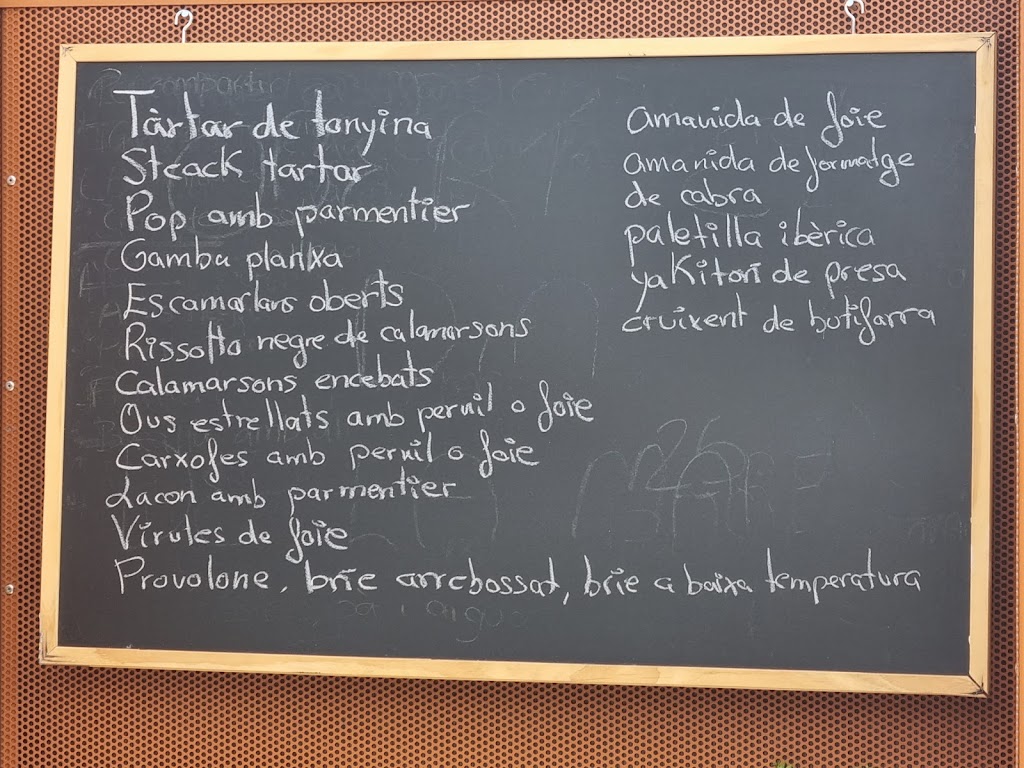 Tàrtar de tonyina
Steack tartar
Pop amb parmentier
Gamba planxa
Escamarlans oberts
Rissotto negre de calamarsons
Calamarsons encebats
Ous estrellats amb pernil o foie
Carxofes amb pernil o foie
Lacon amb parmentier
Virutes de foie
Provolone, brie arrebossat, brie a baixa temperatura
amanida de foie
amanida de formatge
de cabra
paletilla ibèrica
yakitori de presa
cruixent de butifarra